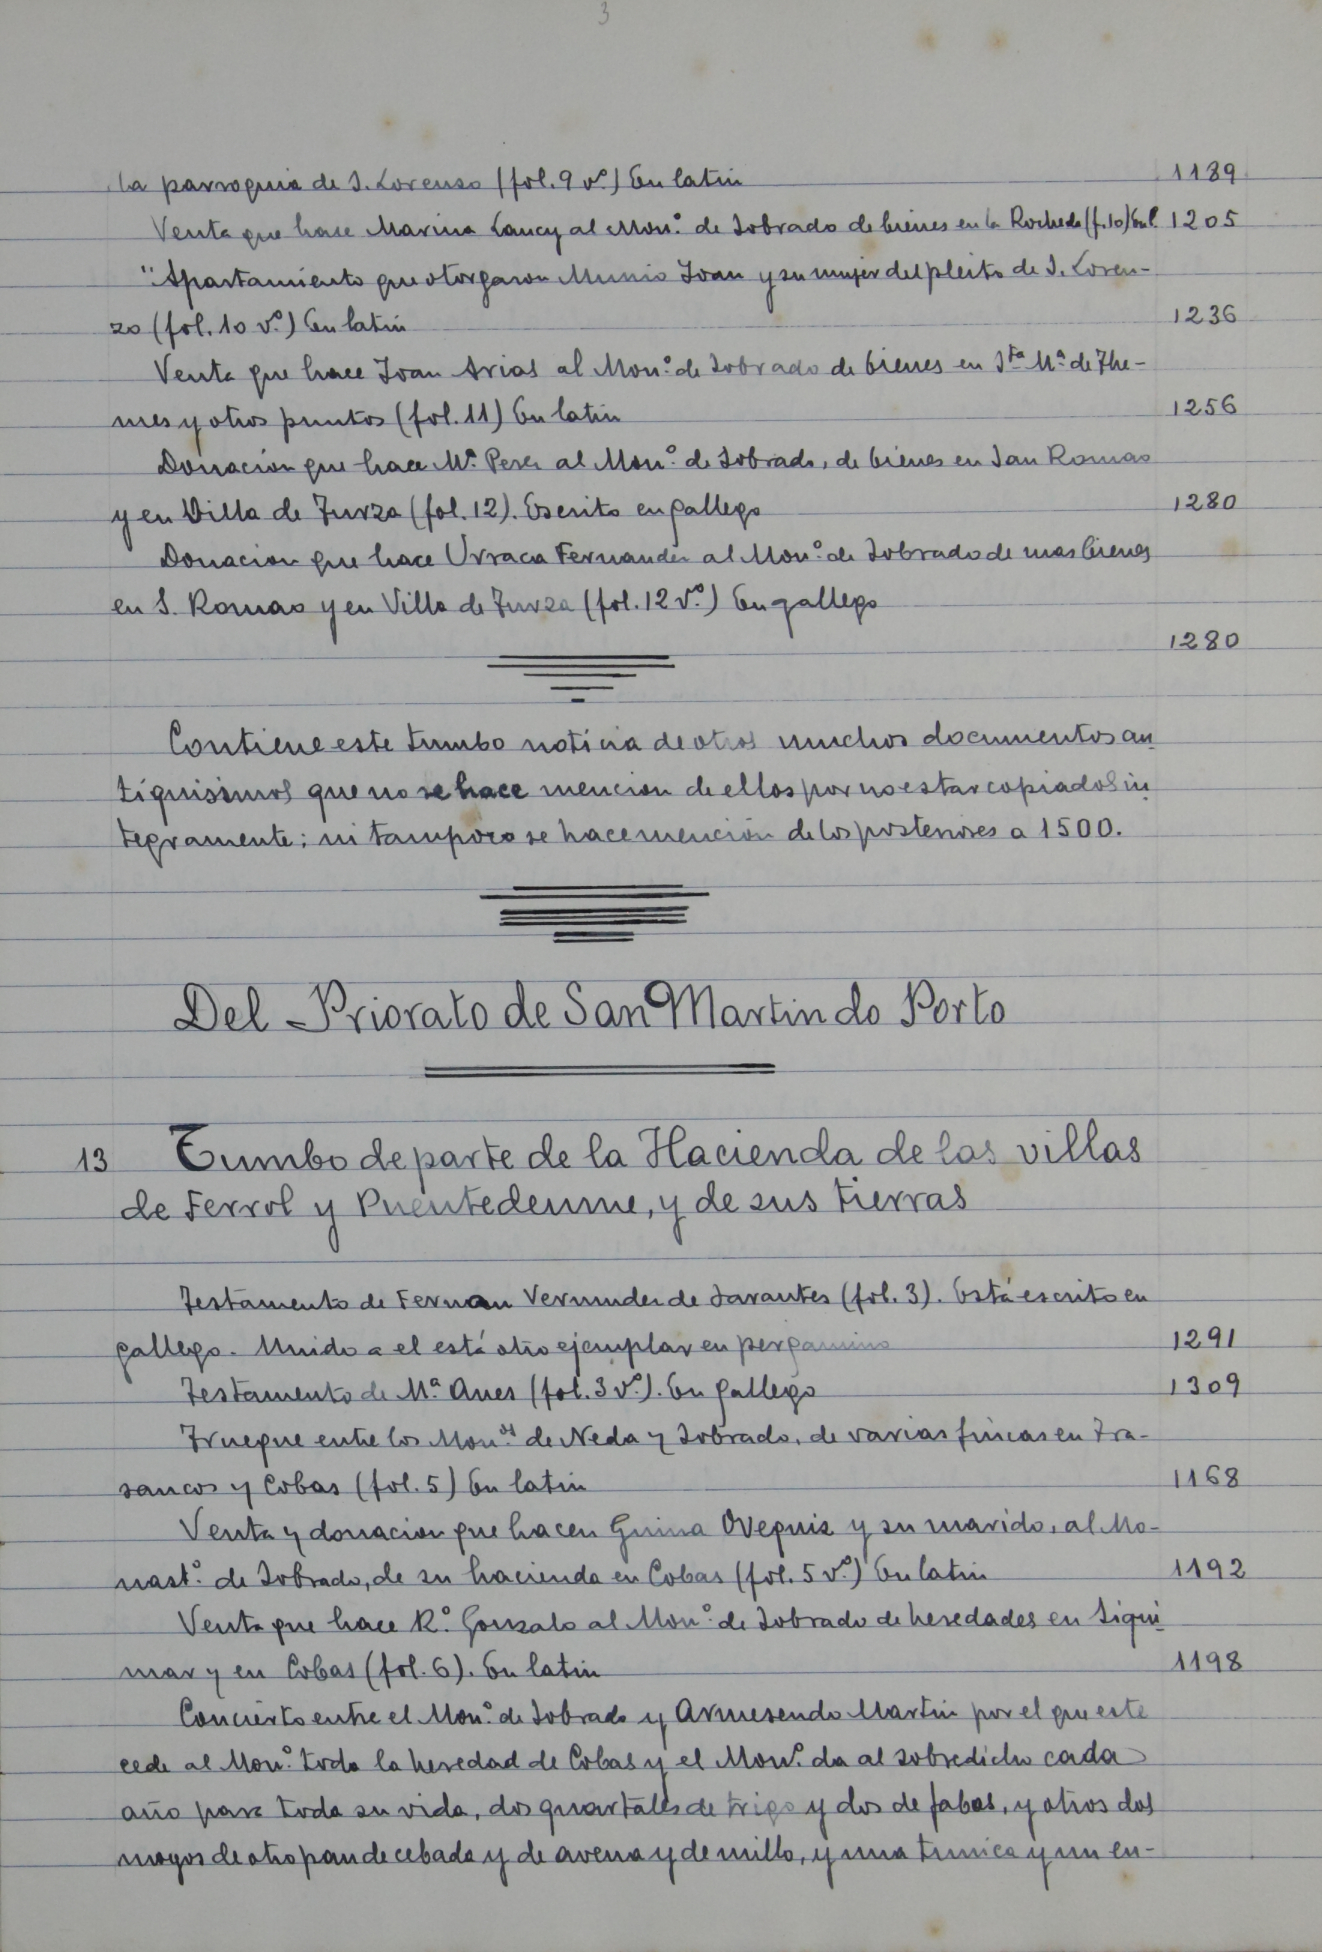 3
la parroquia de S. Lorenzo (fol. 9 vº) En latin 1189
Venta que hace Marina Laucy al Mon.º de Sobrado de bienes en la Rocheda (f. 10) En l. 1205
"Apartamiento que otorgaron Munio Joan y su mujer del pleito de S. Loren-
zo (fol. 10 vº) En latin 1236
Venta que hace Joan Arias al Mon.º de Sobrado de bienes en Sta Mª de The-
mes y otros puntos (fol. 11) En latin 1256
Donación que hace Mª Perez al Mon.º de Sobrado, de bienes en San Romao
y en Villa de Turza (fol. 12). Escrito en gallego 1280
Donacion que hace Urraca Fernandez al Mon.º de Sobrado de mas bienes
en S. Romao y en Villa de Turza (fol. 12 vº) En gallego
1280
Contiene este tumbo noticia de otros muchos documentos an
tiquisimos que no se hace mencion de ellos por no estar copiados in
tegramente; ni tampoco se hace mención de los posteriores a 1500.
Del Priorato de San Martin do Porto
13 Tumbo de parte de la Hacienda de las villas
de Ferrol y Puentedeume, y de sus tierras
Testamento de Fernan Vermudez de Sarantes (fol. 3). Está escrito en
gallego. Unido a el está otro ejemplar en pergamino 1291
Testamento de Mª Anes (fol. 3 vº). En gallego 1309
Trueque entre los Mon.os de Neda y Sobrado, de varias fincas en Tra-
sancos y Cobas (fol. 5) En latin 1168
Venta y donacion que hacen Guina Ovequiz y su marido, al Mo-
nast.º de Sobrado, de su hacienda en Cobas (fol. 5 vº) En latin 1192
Venta que hace R.º Gonzalo al Mon.º de Sobrado de heredades en Siqui
mar y en Cobas (fol. 6). En latin 1198
Concierto entre el Mon.º de Sobrado y Armesendo Martin por el que este
cede al Mon.º toda la heredad de Cobas y el Mon.º da al sobredicho cada
año para toda su vida, dos quartales de trigo y dos de fabas, y otros dos
moyos de otro pan de cebada y de avena y de millo, y una tunica y un en-